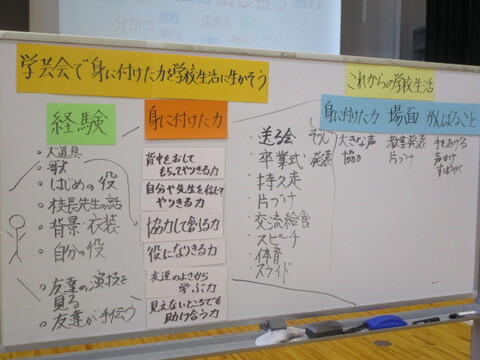 分かつ 深める
協力
学芸会で身に付けた力を学校生活に生かそう
経験
・大道具
・歌
・はじめの役
・校長先生の話
・背景・衣装
・自分の役
・友達の演技を見る
・友達が手伝う
身に付けた力
背中をおして
もらってやりきる力
自分や先生を信じて
やりきる力
協力して創る力
役になりきる力
友達のよさから
学ぶ力
見えないところでも
助け合う力
これからの学校生活
身に付けた力 場面 がんばること
・送る会
・卒業式
・持久走
・片づけ
・交流給食
・スピーチ
・体育
・スライド
そうじ
発表
大きな声 教室発表 手をあげる
協力 片づけ 声かけ
すばやく